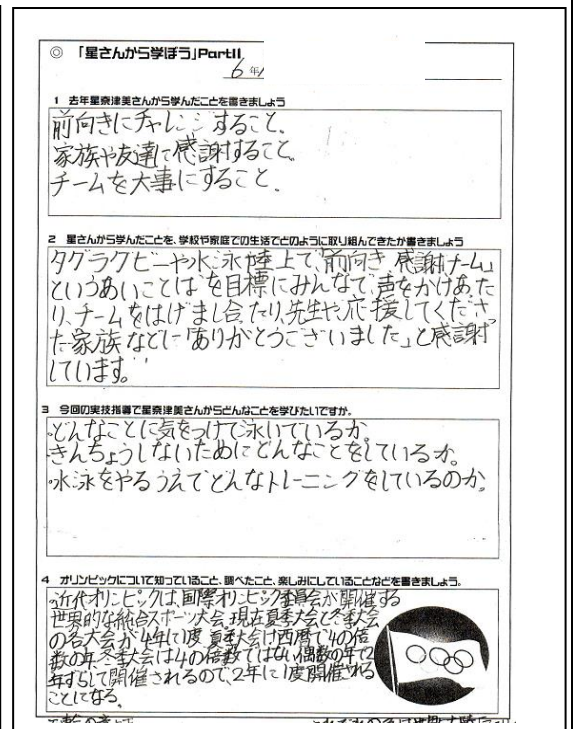 ◎ 「星さんから学ぼう」PartII
6年
1 去年星奈津美さんから学んだことを書きましょう
前向きにチャレンジすること。
家族や友達に感謝すること。
チームを大事にすること。
2 星さんから学んだことを、学校や家庭での生活でどのように取り組んできたか書きましょう
タグラグビーや水泳や陸上で「前向き 感謝 チーム」
というあいことばを目標にみんなで声をかけあった
り、チームをはげまし合ったり、先生や、応援してくださっ
た家族などに「ありがとうございました」と感謝
しています。
3 今回の実技指導で星奈津美さんからどんなことを学びたいですか。
・どんなことに気をつけて泳いでいるか。
・きんちょうしないためにどんなことをしているか。
・水泳をやるうえでどんなトレーニングをしているのか。
4 オリンピックについて知っていること、調べたこと、楽しみにしていることなどを書きましょう。
・近代オリンピックは、国際オリンピック委員会が開催する
世界的な総合スポーツ大会。現在夏季大会と冬季大会
の各大会が4年に1度、夏季大会は西暦で4の倍
数の年、冬季大会は4の倍数ではない偶数の年で2
年ずらして開催されるので、2年に1度開催される
ことになる。